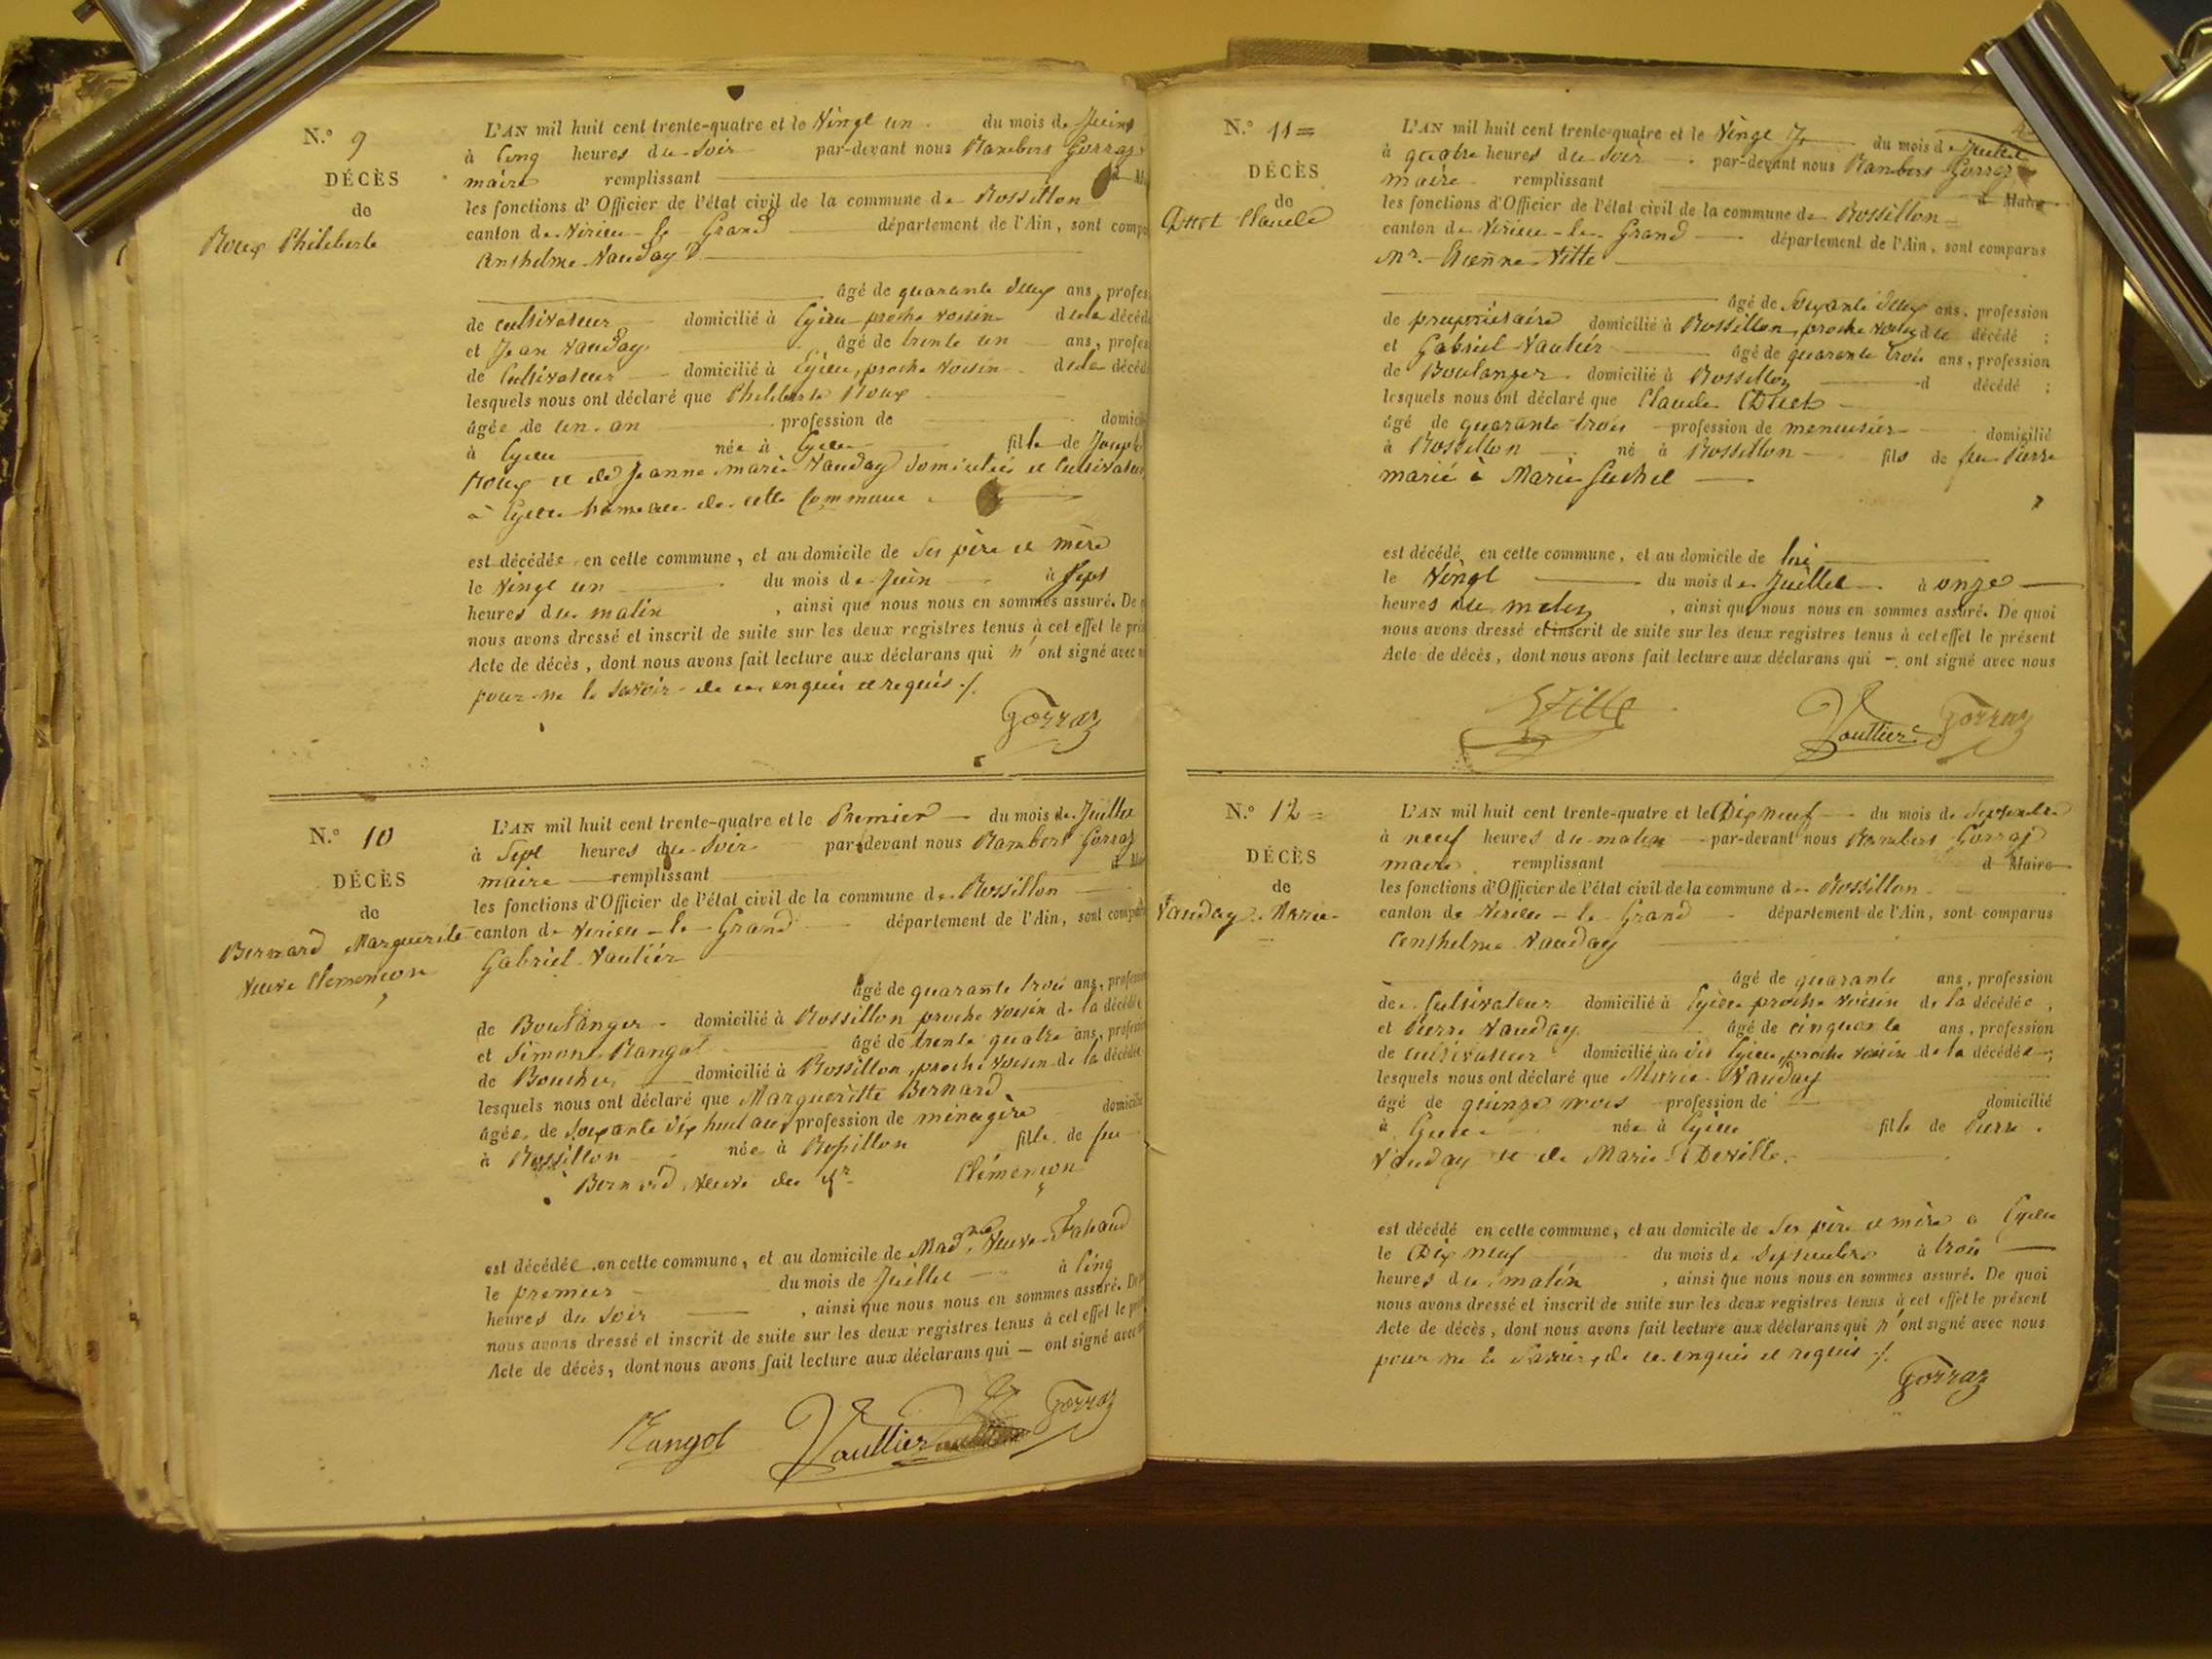 N.° 9
DÉCÈS
de
Roux Philiberte
L'AN mil huit cent trente-quatre et le Vingt un du mois de Juin
à Cinq heures du Soir par-devant nous Rambert Gorraz
maire remplissant
les fonctions d'Officier de l'état civil de la commune de Rossillon
canton de Virieu-le-Grand département de l'Ain, sont comp
Anthelme Vauday
âgé de quarante deux ans, profes
de cultivateur domicilié à Egieu proche voisin de la décéd
et Jean Vauday âgé de trente un ans, profes
de Cultivateur domicilié à Egieu, proche voisin de la décéd
lesquels nous ont déclaré que Philiberte Roux
âgée de un an profession de domici
à Egieu née à Egieu fille de Joseph
Roux et de Jeanne marie Vauday domiciliés et Cultivateurs
à Egieu hameau de cette Commune
est décédée en cette commune, et au domicile de Ses père et mère
le Vingt un du mois de Juin à Sept
heures du matin , ainsi que nous nous en sommes assuré. De
nous avons dressé et inscrit de suite sur les deux registres tenus à cet effet le pré
Acte de décès, dont nous avons fait lecture aux déclarans qui n'ont signé avec n
pour ne le Savoir de ce enquis et requis ./.
Gorraz
N.° 10
DÉCÈS
de
Bernard Marguerite
Veuve Clemencon
L'AN mil huit cent trente-quatre et le Premier du mois de Juillet
à Sept heures du Soir par-devant nous Rambert Gorraz
maire remplissant
les fonctions d'Officier de l'état civil de la commune de Rossillon
canton de Virieu-le-Grand département de l'Ain, sont compar
Gabriel Vautier
âgé de quarante trois ans, profession
de Boulanger domicilié à Rossillon proche voisin de la décédée
et Simon Rangot âgé de trente quatre ans, profession
de Boucher domicilié à Rossillon, proche voisin de la décédée
lesquels nous ont déclaré que Margueritte Bernard
âgée de Soixante dix huit ans, profession de ménagère domicilié
à Rossillon née à Rossillon fille de feu
Bernard, Veuve du Sr Clémencon
est décédée en cette commune, et au domicile de Mad.me Veuve
le premier du mois de Juillet à Cinq
heures du Soir , ainsi que nous nous en sommes assuré. De
nous avons dressé et inscrit de suite sur les deux registres tenus à cet effet le pr
Acte de décès, dont nous avons fait lecture aux déclarans qui — ont signé avec
Rangot Vauttier Gorraz
N.° 11
DÉCÈS
de
Duet Claude
L'AN mil huit cent trente-quatre et le Vingt du mois de Juillet
à quatre heures du Soir par-devant nous Rambert Gorraz
maire remplissant d Maire
les fonctions d'Officier de l'état civil de la commune de Rossillon
canton de Virieu-le-Grand département de l'Ain, sont comparus
Mr. Etienne Ville
âgé de Soixante deux ans, profession
de propriétaire domicilié à Rossillon, proche voisin du décédé ;
et Gabriel Vautier âgé de quarante trois ans, profession
de Boulanger domicilié à Rossillon d décédé ;
lesquels nous ont déclaré que Claude Duet
âgé de quarante trois profession de menuisier domicilié
à Rossillon né à Rossillon fils de feu Pierre
marié à Marie Suchet
est décédé en cette commune, et au domicile de lui
le Vingt du mois de Juillet à onze
heures du matin , ainsi que nous nous en sommes assuré. De quoi
nous avons dressé et inscrit de suite sur les deux registres tenus à cet effet le présent
Acte de décès, dont nous avons fait lecture aux déclarans qui — ont signé avec nous
Ville Vauttier Gorraz
N.° 12
DÉCÈS
de
Vauday Marie
L'AN mil huit cent trente-quatre et le Dix neuf du mois de Septembre
à neuf heures du matin par-devant nous Rambert Gorraz
maire remplissant d Maire
les fonctions d'Officier de l'état civil de la commune de Rossillon
canton de Virieu-le-Grand département de l'Ain, sont comparus
Anthelme Vauday
âgé de quarante ans, profession
de Cultivateur domicilié à Egieu proche voisin de la décédée ,
et Pierre Vauday âgé de cinquante ans, profession
de cultivateur domicilié au dit Egieu, proche voisin de la décédée ;
lesquels nous ont déclaré que Marie Vauday
âgé de quinze mois profession de domicilié
à Egieu née à Egieu fille de Pierre
Vauday et de Marie Deville
est décédé en cette commune, et au domicile de Ses père et mère a Egieu
le Dix neuf du mois de Septembre à trois
heures du matin , ainsi que nous nous en sommes assuré. De quoi
nous avons dressé et inscrit de suite sur les deux registres tenus à cet effet le présent
Acte de décès, dont nous avons fait lecture aux déclarans qui n'ont signé avec nous
pour ne le Savoir, de ce enquis et requis ./.
Gorraz